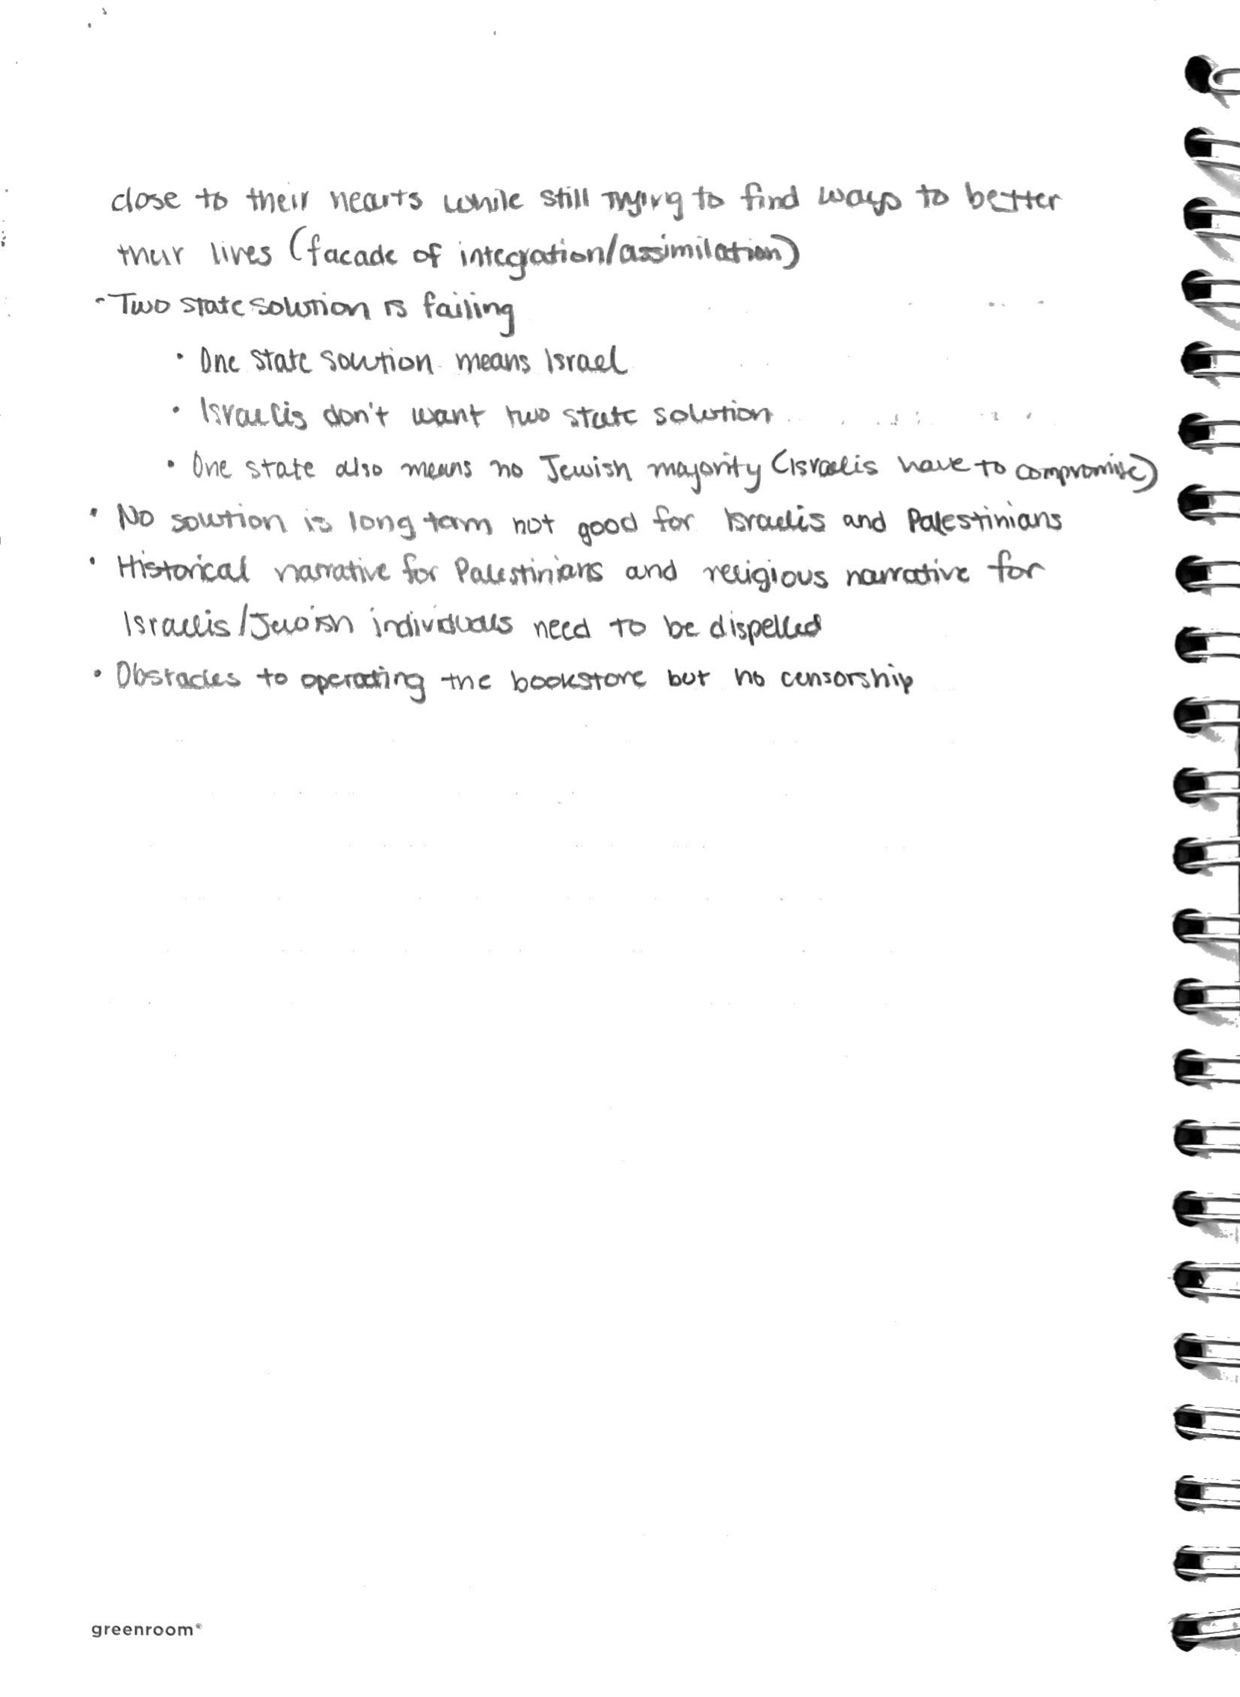 close to their hearts while still trying to find ways to better
their lives (facade of integration/assimilation)
- Two state solution is failing
• One state solution means Israel
• Israelis don't want two state solution
• One state also means no Jewish majority (Israelis have to compromise)
• No solution is long term not good for Israelis and Palestinians
• Historical narrative for Palestinians and religious narrative for
Israelis/Jewish individuals need to be dispelled
• Obstacles to operating the bookstore but no censorship
greenroom®